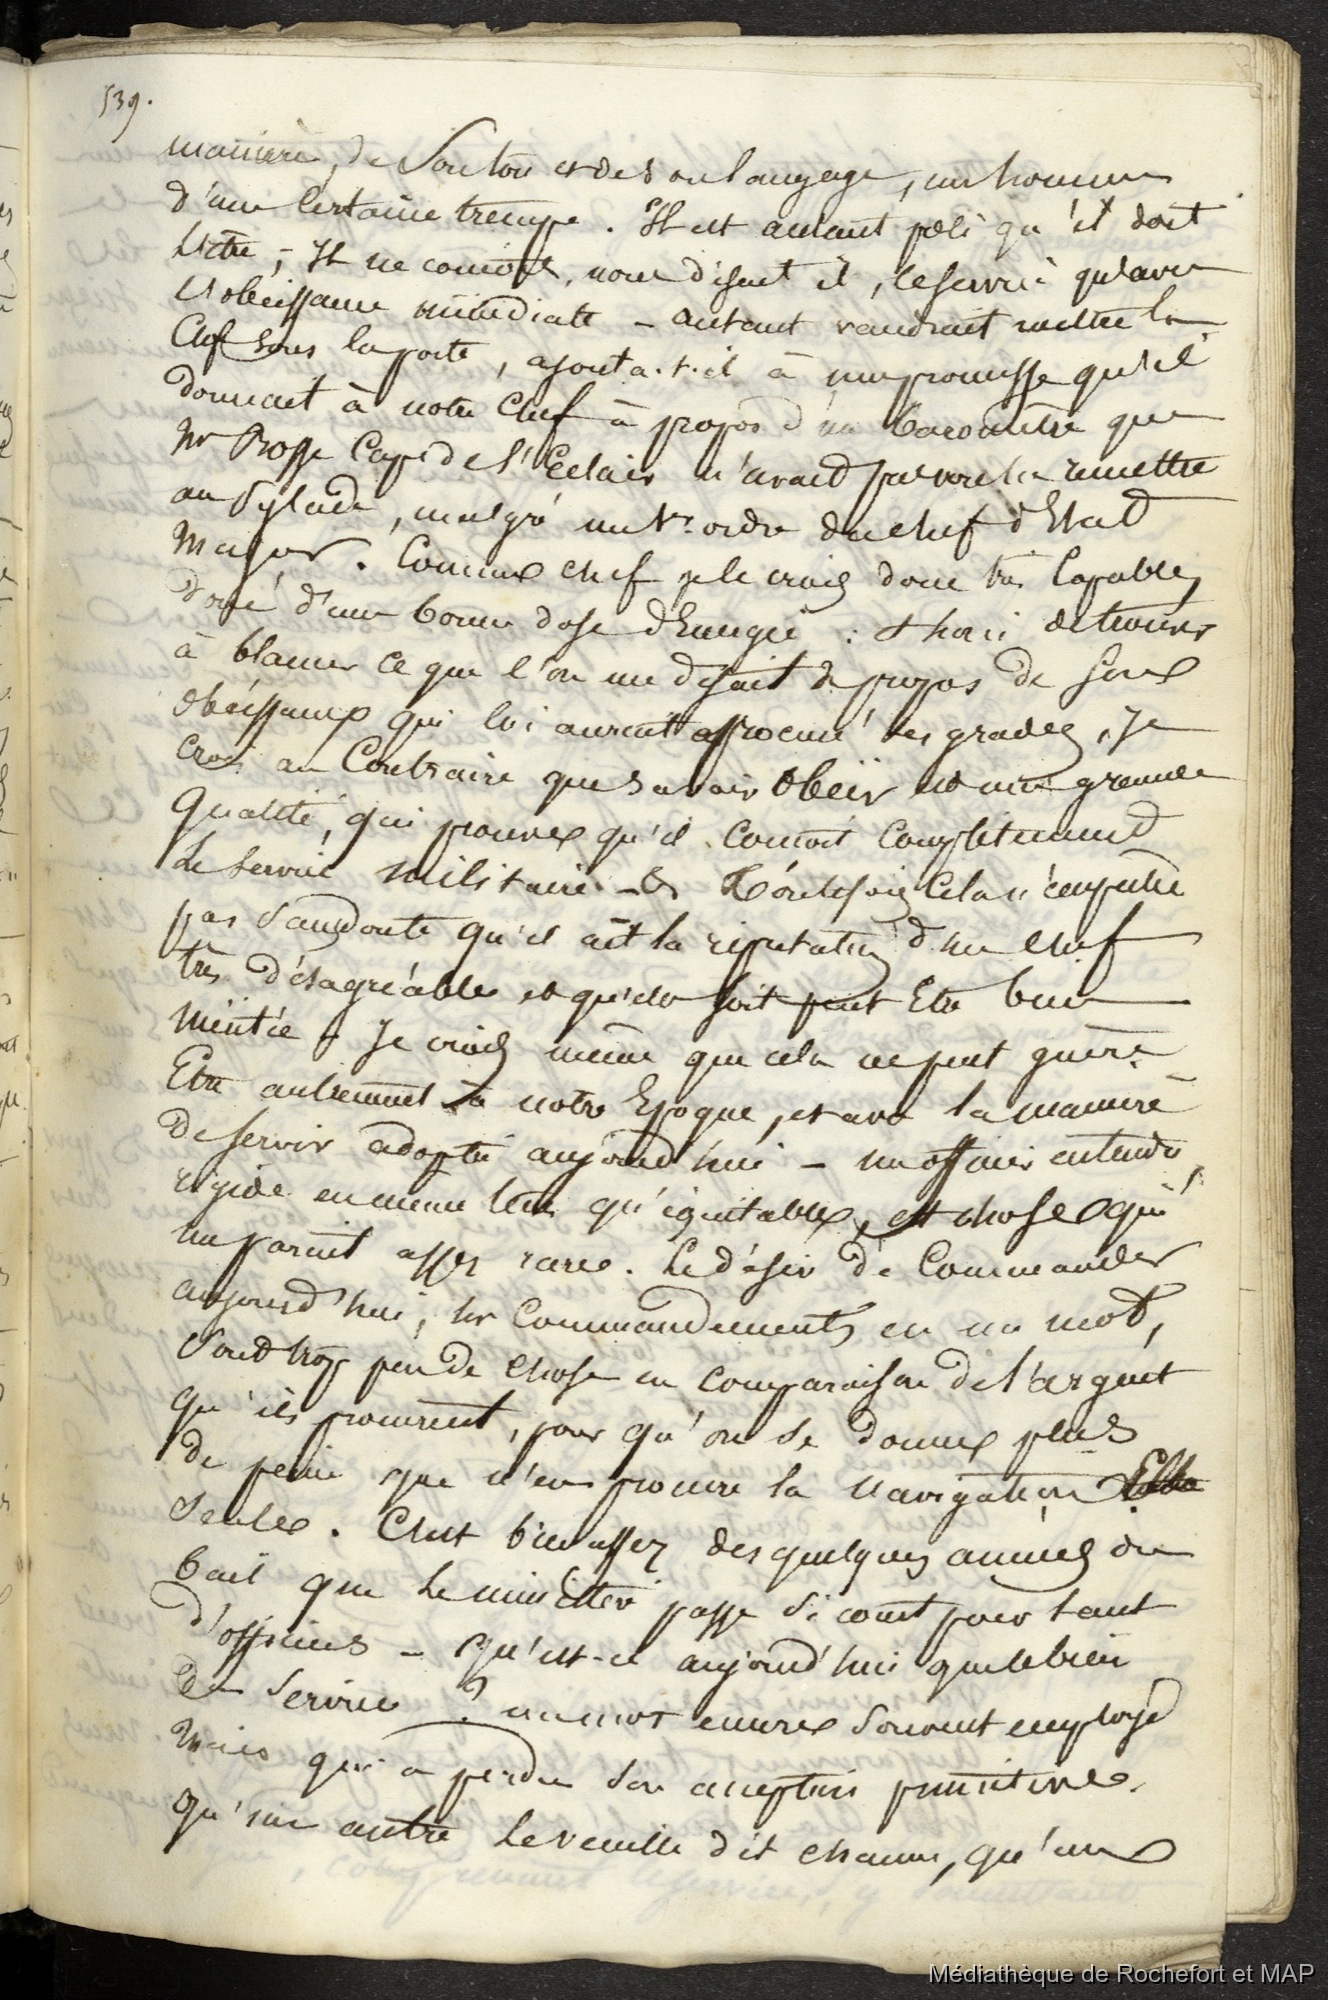 539.
manière, de Son ton et de Son langage, un homme
d'une Certaine trempe. Il est autant poli qu'il doit
L'etre; Il ne connoît, nous disait il, le service qu'avec
L'obeissance immédiate - autant vaudrait mettre la
Clef Sous la porte, ajouta-t-il à une promesse qu'il
donnait à notre Chef à propos d'un baromètre que
Mr Cap. de l'Eclair n'avait pas voulu remettre
au Pylade, malgré un ordre du chef d'Etat
Major. Comme chef je le crois donc très Capable,
doué d'une bonne dose d'Energie : & loin de trouver
à blamer ce que l'on me disait à propos de Son
Obéissance qui lui auroit procuré Ses grades, Je
crois au Contraire que Savoir Obéir est une grande
qualité, qui prouve qu'il connoit Complètement
Le Service militaire. Toutefois Cela n'empeche
pas Sans doute qu'il ait la réputation d'un chef
très désagréable et qu'elle soit peut Etre bien
méritée. Je crois même que cela ne peut guère
Etre autrement à notre Epoque, et avec la manière
de Servir adoptée aujourd'hui - un officier entendu,
rigide en meme tems qu'équitable, est chose qui
me paroit assez rare. Le désir de Commander
aujourd'hui, les Commandements en un mot,
Sont trop peu de chose en comparaison de l'argent
qu'ils procurent, pour qu'on se donne plus
de peine que n'en procure la Navigation
Seule. C'est bien assez des quelques années de
bail que le ministère passe Si court pour tant
d'officiers - Qu'est-ce aujourd'hui que le bien
du Service ? un mot encore Souvent employé
Mais qui a perdu Son acception primitive.
qu'un autre Le veuille dit chacun, qu'un
Médiathèque de Rochefort et MAP